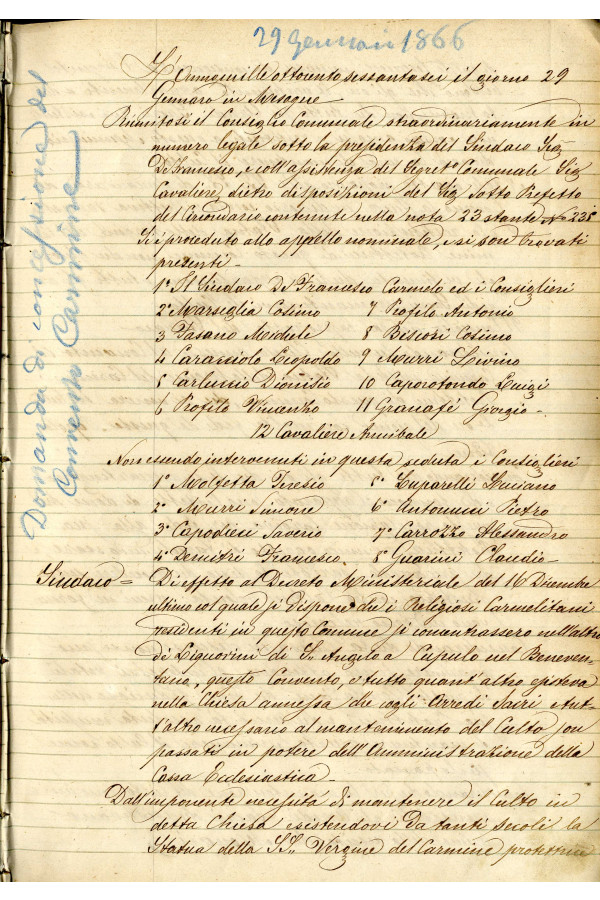 29 Gennaio 1866
Domanda di concessione del
Convento Carmine
L'Anno mille ottocento sessantasei il giorno 29
Gennaro in Mesagne
Riunitosi il Consiglio Comunale straordinariamente in
numero legale sotto la presidenza del Sindaco Sig.
De Francesco, e coll'assistenza del Segret.o Comunale Sig.
Cavaliere, dietro disposizioni del Sig. Sotto Prefetto
del Circondario contenute nella nota 23 stante N.o 235
Si è proceduto allo appello nominale, e si son trovati
presenti -
1o Il Sindaco De Francesco Carmelo ed i Consiglieri
2o Marseglia Cosimo 7 Profilo Antonio
3 Fasano Michele 8 Biscosi Cosimo
4 Caracciolo Leopoldo 9 Murri Livino
5 Carluccio Dionisio 10 Caporotondo Luigi
6 Profilo Vincenzo 11 Granafé Giorgio -
12 Cavaliere Annibale
Non essendo intervenuti in questa seduta i Consiglieri
1o Molfetta Teresio 5o Luparelli Luciano
2o Murri Simone 6o Antonucci Pietro
3o Capodieci Saverio 7o Carrozzo Alessandro
4o Demitri Francesco 8 Guarini Claudio -
Sindaco = Di effetto al Decreto Ministeriale del 16 Dicembre
ultimo col quale si dispone che i Religiosi Carmelitani
residenti in questo Comune si concentrassero nell'altro
di Liguorini di S. Angelo a Cupulo nel Beneven-
tano, questo Convento, e tutto quant'altro esisteva
nella Chiesa annessa che cogli Arredi Sacri e tut-
t'altro necessario al mantenimento del Culto son
passati in potere dell'Amministrazione della
Cassa Ecclesiastica -
Dall'imponente necessità di mantenere il Culto in
detta Chiesa esistendovi da tanti secoli la
Statua della SS. Vergine del Carmine protettrice